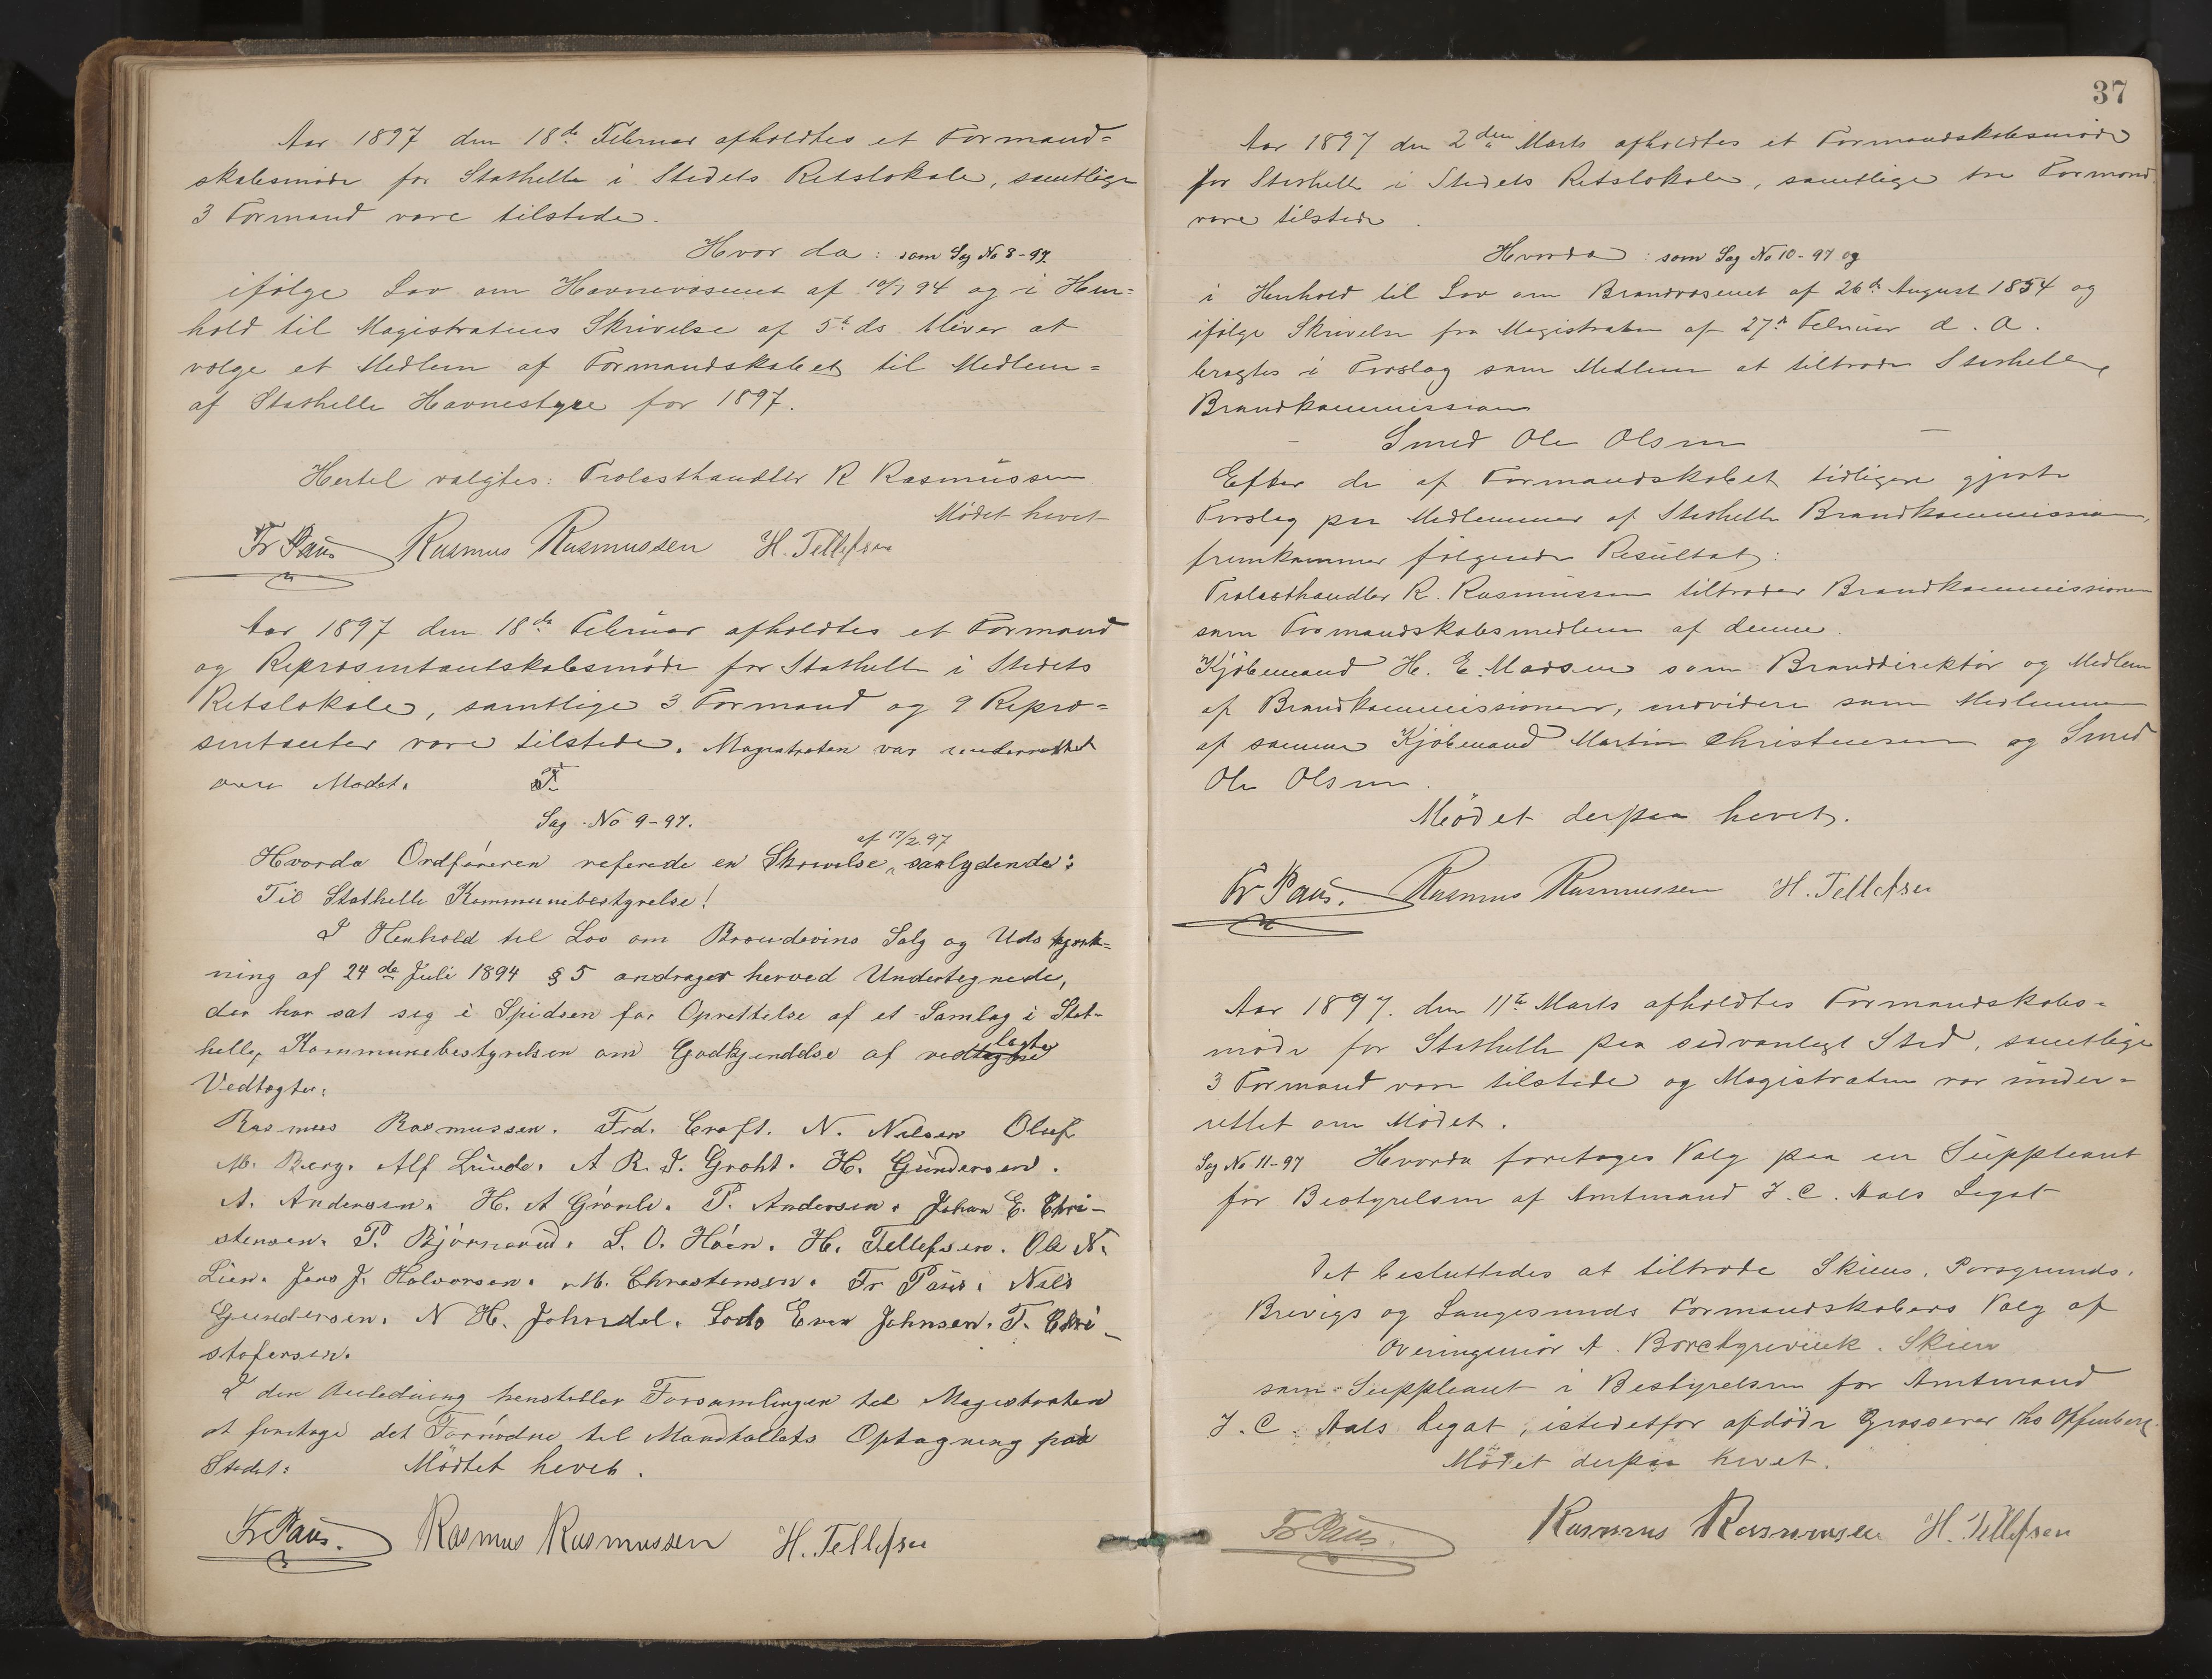 Aar 1897 den 18de Februar afholdtes et Formand=
skabsmøde for Stathelle i Stedets Retslokale, samtlige
3 Formænd vare tilstede.
Hvor da: som Sag No 8-97.
ifølge Lov om Havnevæsenet af 10/7 94 og i Hen=
hold til Magistratens Skrivelse af 5te ds bliver at
vælge et Medlem af Formandskabet til Medlem=
af Stathelle Havnestyre for 1897.
Hertil valgtes: Trælasthandler R Rasmussen
Mødet hevet
Fr Paus Rasmus Rasmussen H. Tellefsen
Aar 1897 den 18de Februar afholdtes et Formand
og Repræsentantskabsmøde for Stathelle i Stedets
Retslokale, samtlige 3 Formænd og 9 Repræ=
sentanter vare tilstede. Magistraten var underrettet
Mødet.
Sag No 9-97.
af 17/2.97
Hvorda Ordføreren referede en Skrivelse, saalydende:
Til Stathelle Kommunebestyrelse!
I Henhold til Lov om Brændevins Salg og Udskjænk=
ning af 24de Juli 1894 § 5 andrager herved Undertegnede,
der har sat sig i Spidsen for Oprettelse af et Samlag i Stat-
helle, Kommunebestyrelsen om Godkjendelse af vedlagte
Vedtægter.
Rasmus Rasmussen. Frd. Croft. N. Nilsen Oluf
M. Berg. Alf Lunde. A R. J. Groht. H. Gundersen.
A. Anderssen. H. A Grønli. P. Andersen. Johan E. Chri-
stensen. P. Bjørnerud. L. O. Høen. H. Tellefsen. Ole N.
Lien. Jens J. Halvorsen. M. Christensen. Fr Paus. Nils
Gundersen. N H. Johnsdal. Lods Even Johnsen. T. Chri-
stofersen.
I den Anledning henstiller Forsamlingen til Magistraten
at foretage det Fornødne til Mandtallets Optagning paa
Stedet. Mødtet hevet.
Fr Paus. Rasmus Rasmussen H. Tellefsen
37
Aar 1897 den 2den Marts afholdtes et Formandskabsmøde
for Stathelle i Stedets Retslokale, samtlige tre Formænd
vare tilstede.
Hvorda: som Sag No 10-97 og
i Henhold til Lov om Brandvæsenet af 26de August 1854 og
ifølge Skrivelse fra Magistraten af 27de Februar d. A.
bragtes i Forslag som Medlem at tiltræde Stathelle
Brandkommission
- Smed Ole Olsen -
Efter de af Formandskabet tidligere gjorte
Forslag paa Medlemmer af Stathelle Brandkommission,
fremkommer følgende Resultat:
Trælasthandler R. Rasmussen tiltræder Brandkommissionen
som Formandskabsmedlem af denne.
Kjøbmand H. E. Madsen som Branddirektør og Medlem
af Brandkommissionen, endvidere som Medlemmer
af samme Kjøbmand Martin Christensen og Smed
Ole Olsen.
Mødet derpaa hevet.
Fr Paus. Rasmus Rasmussen H. Tellefsen
Aar 1897. den 11te Marts afholdtes Formandskabs=
møde for Stathelle paa sedvanligt Sted, samtlige
3 Formænd vare tilstede og Magistraten var under=
rettet om Mødet.
Sag No 11-97 Hvorda foretages Valg paa en Suppleant
for Bestyrelsen af Amtmand J. C. Aals Legat
Det besluttedes at tiltræde Skiens, Porsgrunds,
Brevigs og Langesunds Formandskabers Valg af
Overingeniør A. Borchgrevink, Skien
som Suppleant i Bestyrelsen for Amtmand
J. C. Aals Legat, istedetfor afdøde Grosserer Ths Offenberg.
Mødet derpaa hevet.
Fr Paus. Rasmus Rasmussen H. Tellefsen